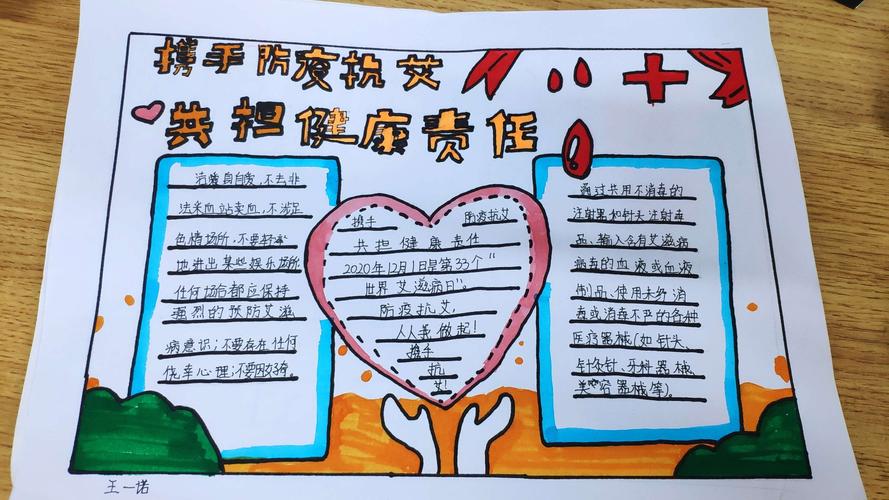 携手防疫抗艾
共担健康责任
洁身自爱,不去非
法采血站卖血,不涉足
色情场所,不要轻率
地进出某些娱乐场所
任何场合都应保持
强烈的预防艾滋
病意识;不要存在任何
侥幸心理;不要因好奇。
携手 防疫抗艾
共担健康责任
2020年12月1日是第33个“
世界艾滋病日”。
防疫抗艾,
人人我做起!
携手
抗
艾!
通过共用不消毒的
注射器和针头注射毒
品、输入含有艾滋病
病毒的血液或血液
制品、使用未经消
毒或消毒不严的各种
医疗器械(如针头、
针灸针、牙科器械、
美容器械等)。
王一诺